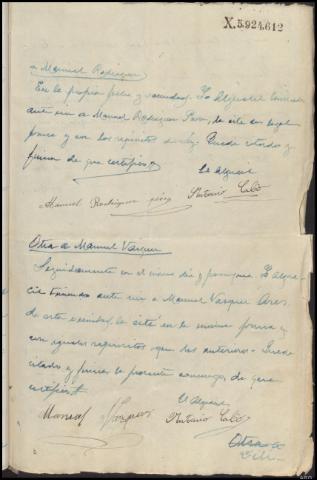 X.5.924.612
a Manuel Rodriguez
En la propia fecha y vecindad, Yo Alguacil
ante mi a Manuel Rodriguez Perez, le cité en legal
forma y con los requisitos de ley. Quedó citado y
firma de que certifico
El Alguacil
Manuel Rodriguez perez Antonio Caló
Otra a Manuel Vazquez
Seguidamente en el mismo dia y parroquia, Yo Algua-
cil teniendo ante mi a Manuel Vazquez Ares
de esta vecindad, le cité en la misma forma y
con iguales requisitos que los anteriores. Quedó
citado y firma la presente conmigo de que
certifico
El Alguacil
Manuel Vazquez Antonio Caló
Otra a